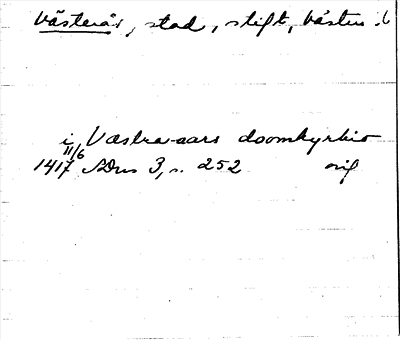 Västerås, stad, stift, Västm. l
i Vastra-aars doomkyrkio
11/6
1417 SDns 3, s. 252 orig